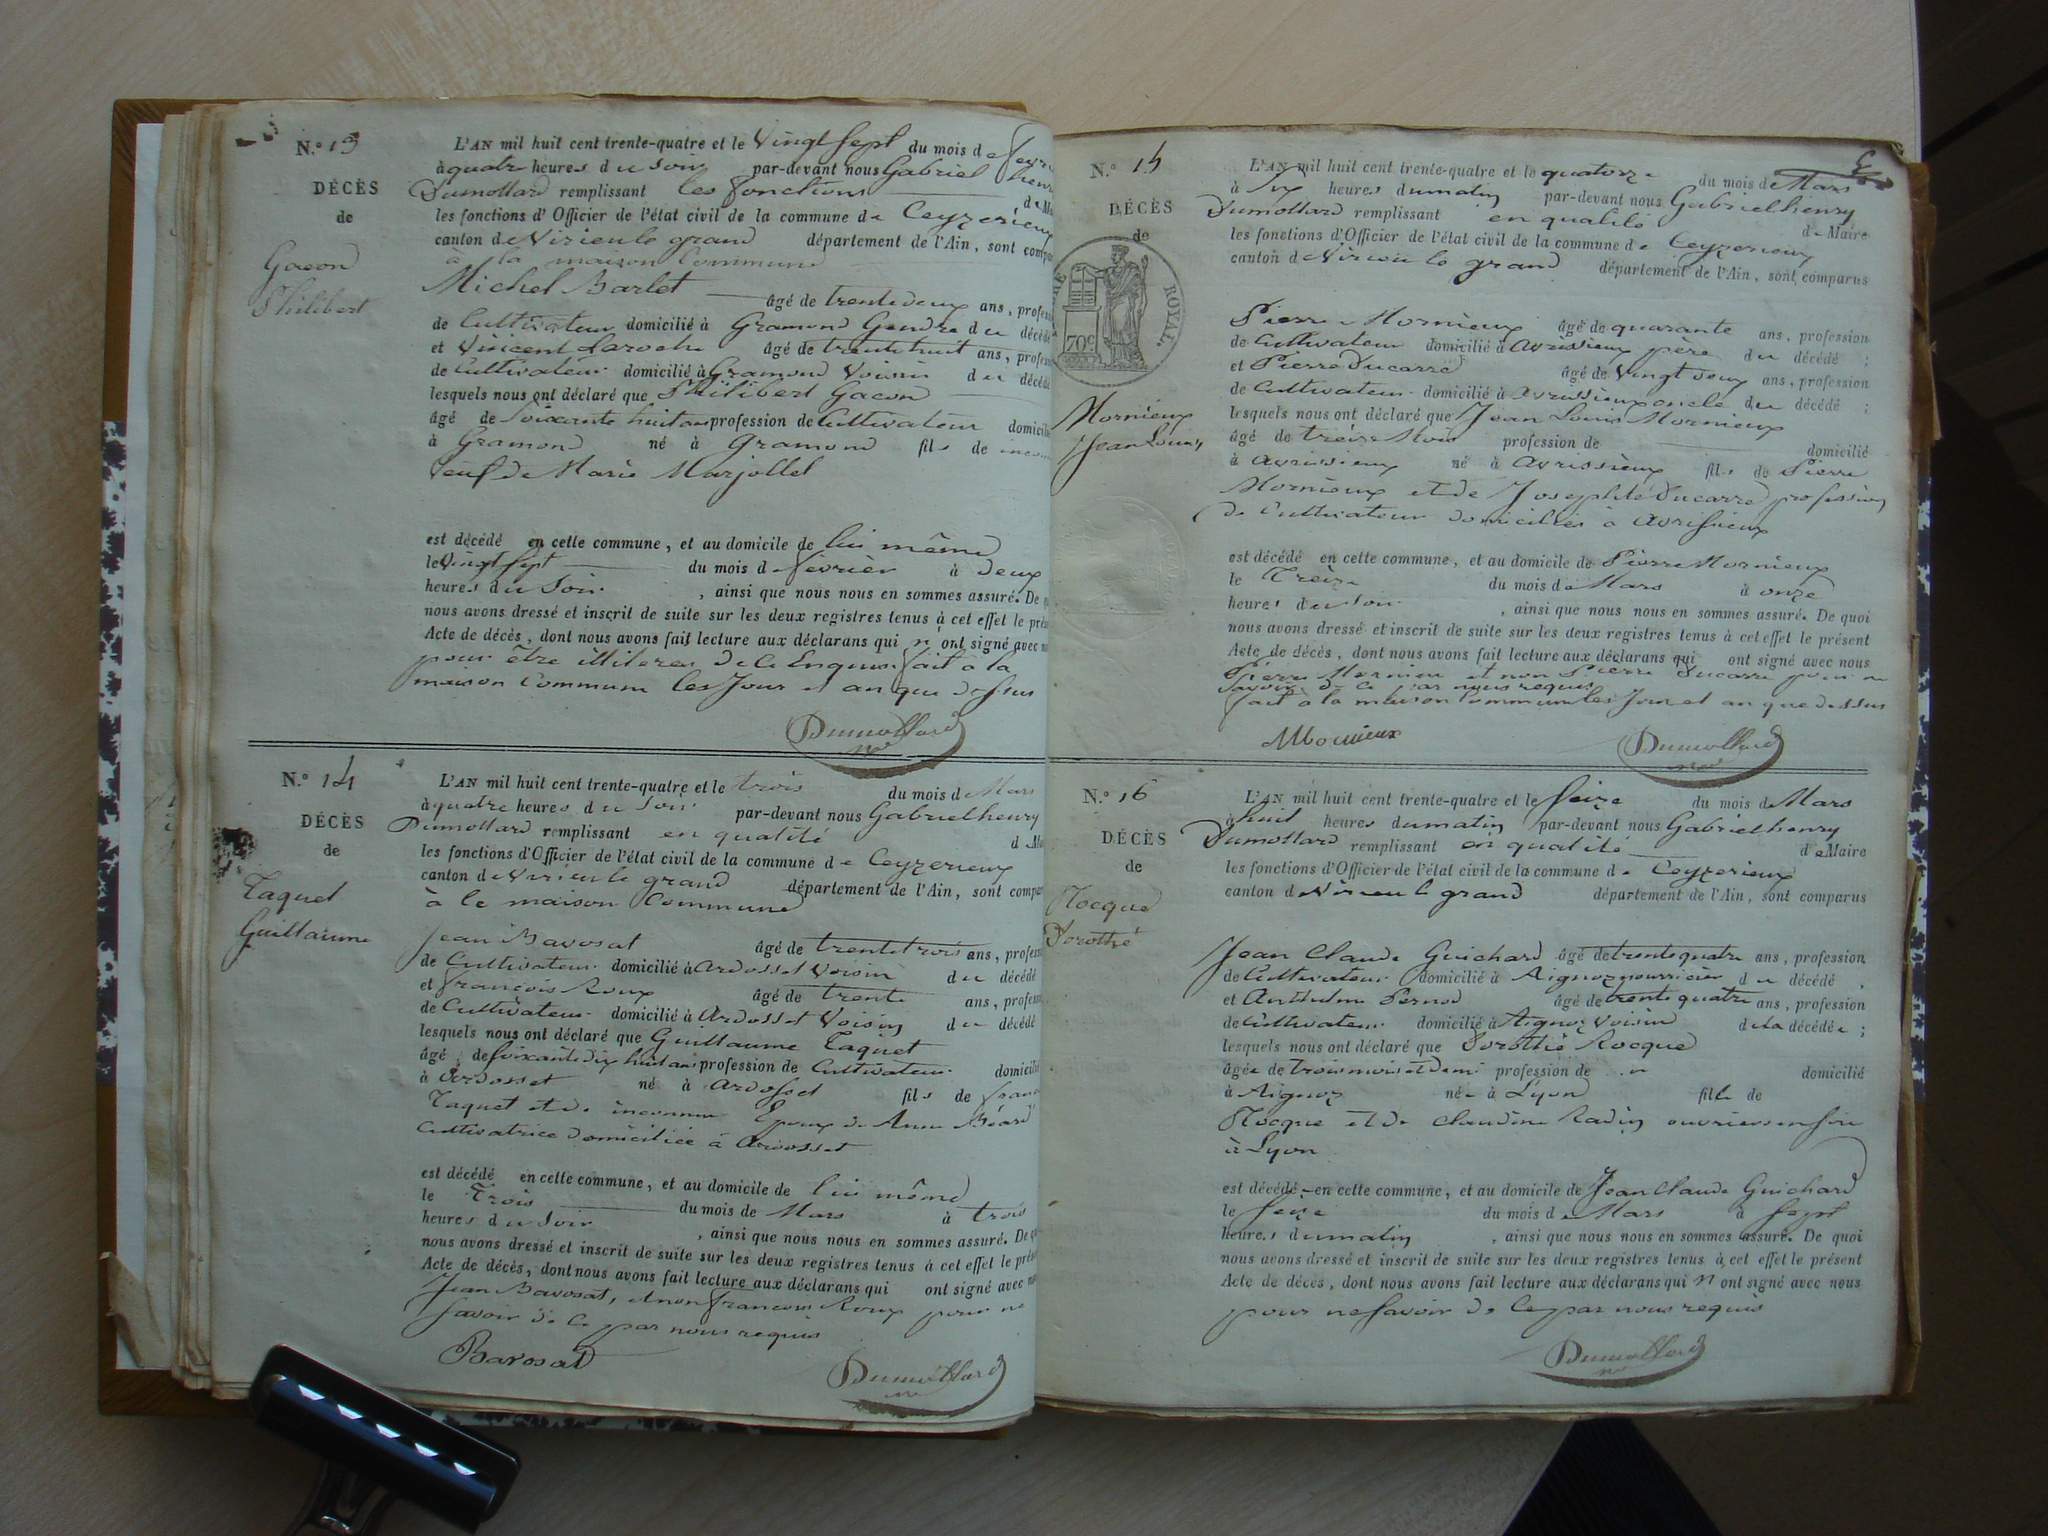 N.° 13
DÉCÈS
de
Gacon
Philibert
L'AN mil huit cent trente-quatre et le Vingt sept du mois de
à quatre heures du soir par-devant nous Gabriel
Dumollard remplissant les fonctions
les fonctions d'Officier de l'état civil de la commune de Ceyzerieux
canton de Virieu le grand département de l'Ain, sont
à la maison Commune
Michel Barlet âgé de trente deux ans,
de Cultivateur domicilié à Gramond Gendre du décédé
et Vincent Laroche âgé de trente huit ans,
de Cultivateur domicilié à Gramond Voisin du décédé
lesquels nous ont déclaré que Philibert Gacon
âgé de soixante huit ans profession de Cultivateur
à Gramond né à Gramond fils de
Veuf de Marie Marjollet
est décédé en cette commune, et au domicile de lui même
le Vingt sept du mois de fevrier à deux
heures du Soir, ainsi que nous nous en sommes assuré. De
nous avons dressé et inscrit de suite sur les deux registres tenus à cet effet le
Acte de décès, dont nous avons fait lecture aux déclarans qui n'ont signé avec
pour être illiteres de ce Enquis fait à la
maison Commune les Jour et an que dessus
Dumollard
N.° 14
DÉCÈS
de
Taquet
Guillaume
L'AN mil huit cent trente-quatre et le trois du mois de Mars
à quatre heures du Soir par-devant nous Gabriel henry
Dumollard remplissant en qualité
les fonctions d'Officier de l'état civil de la commune de Ceyzerieux
canton de Virieu le grand département de l'Ain, sont
à la maison Commune
Jean Bavosat âgé de trente trois ans,
de Cultivateur domicilié à Ardosset Voisin du décédé
et francois Roux âgé de trente ans,
de Cultivateur domicilié à Ardosset Voisin du décédé
lesquels nous ont déclaré que Guillaume Taquet
âgé de soixante dix huit ans profession de Cultivateur
à Ardosset né à Ardosset fils de
Taquet et de inconnue Epoux de Anne Béard
Cultivatrice domiciliée à Ardosset
est décédé en cette commune, et au domicile de lui même
le Trois du mois de Mars à trois
heures du Soir, ainsi que nous nous en sommes assuré. De
nous avons dressé et inscrit de suite sur les deux registres tenus à cet effet le
Acte de décès, dont nous avons fait lecture aux déclarans qui ont signé avec
Jean Bavosat, et non francois Roux pour ne
savoir de ce par nous requis
Bavosat
Dumollard
N.° 15
DÉCÈS
de
ROYAL
70c
Mornieux
Jean Louis
L'AN mil huit cent trente-quatre et le quatorze du mois de Mars
à six heures du matin par-devant nous Gabriel henry
Dumollard remplissant en qualité de Maire
les fonctions d'Officier de l'état civil de la commune de Ceyzerieux
canton de Virieu le grand département de l'Ain, sont comparus
Pierre Mornieux âgé de quarante ans, profession
de Cultivateur domicilié à Avrissieux père du décédé ;
et Pierre Ducarre âgé de Vingt deux ans, profession
de Cultivateur domicilié à Avrissieux oncle du décédé ;
lesquels nous ont déclaré que Jean Louis Mornieux
âgé de treize Mois profession de domicilié
à Avrissieux né à Avrissieux fils de Pierre
Mornieux et de Josephte Ducarre profession
de Cultivateur domiciliés à Avrissieux
est décédé en cette commune, et au domicile de Pierre Mornieux
le Treize du mois de Mars à onze
heures du Soir, ainsi que nous nous en sommes assuré. De quoi
nous avons dressé et inscrit de suite sur les deux registres tenus à cet effet le présent
Acte de décès, dont nous avons fait lecture aux déclarans qui ont signé avec nous
Pierre Mornieu et non Pierre Ducarre pour ne
savoir de ce par nous requis
fait à la maison Commune les Jour et an que dessus
Dumollard
N.° 16
DÉCÈS
de
Rocque
Dorothé
L'AN mil huit cent trente-quatre et le seize du mois de Mars
à huit heures du matin par-devant nous Gabriel henry
Dumollard remplissant en qualité de Maire
les fonctions d'Officier de l'état civil de la commune de Ceyzerieux
canton de Virieu le grand département de l'Ain, sont comparus
Jean Claude Guichard âgé de trente quatre ans, profession
de Cultivateur domicilié à Aignoz nourricier du décédé
et Anthelme Pernod âgé de trente quatre ans, profession
de Cultivateur domicilié à Aignoz Voisin de la décédée ;
lesquels nous ont déclaré que Dorothé Rocque
âgée de trois mois et demi profession de domicilié
à Aignoz née à Lyon fille de
Rocque et de Claudine Radix ouvriers en soie
à Lyon
est décédé en cette commune, et au domicile de Jean Claude Guichard
le seize du mois de Mars à sept
heures du matin, ainsi que nous nous en sommes assuré. De quoi
nous avons dressé et inscrit de suite sur les deux registres tenus à cet effet le présent
Acte de décès, dont nous avons fait lecture aux déclarans qui n'ont signé avec nous
pour ne savoir de ce par nous requis
Dumollard